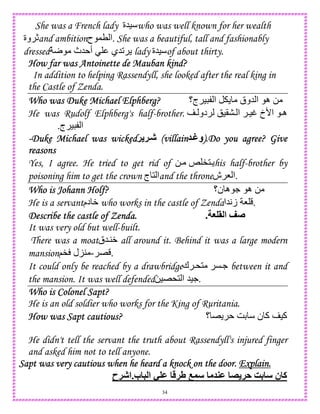 She was a French lady سيدة who was well known for her wealth
ثروة and ambition الطموح. She was a beautiful, tall and fashionably
dressed يرتدي علي أحدث موضة lady سيدة of about thirty.
How far was Antoinette de Mauban kind?
In addition to helping Rassendyll, she looked after the real king in
the Castle of Zenda.
Who was Duke Michael Elphberg? من هو الدوق مايكل الفيبرج؟
He was Rudolf Elphberg's half-brother. هو الأخ غير الشقيق لردولف
الفيبرج.
-Duke Michael was wicked شرير (villain وغد).Do you agree? Give
reasons
Yes, I agree. He tried to get rid of يتخلص من his half-brother by
poisoning him to get the crown التاج and the throne العرش.
Who is Johann Holf? من هو جوهان؟
He is a servant خادم who works in the castle of Zenda قلعة زندا.
Describe the castle of Zenda. صف القلعة.
It was very old but well-built.
There was a moat خندق all around it. Behind it was a large modern
mansion قصر-منزل فخم.
It could only be reached by a drawbridge جسر متحرك between it and
the mansion. It was well defended جيد التحصين.
Who is Colonel Sapt?
He is an old soldier who works for the King of Ruritania.
How was Sapt cautious? كيف كان سابت حريصا؟
He didn't tell the servant the truth about Rassendyll's injured finger
and asked him not to tell anyone.
Sapt was very cautious when he heard a knock on the door. Explain.
كان سابت حريصا عندما سمع طرقا علي الباب.اشرح
34